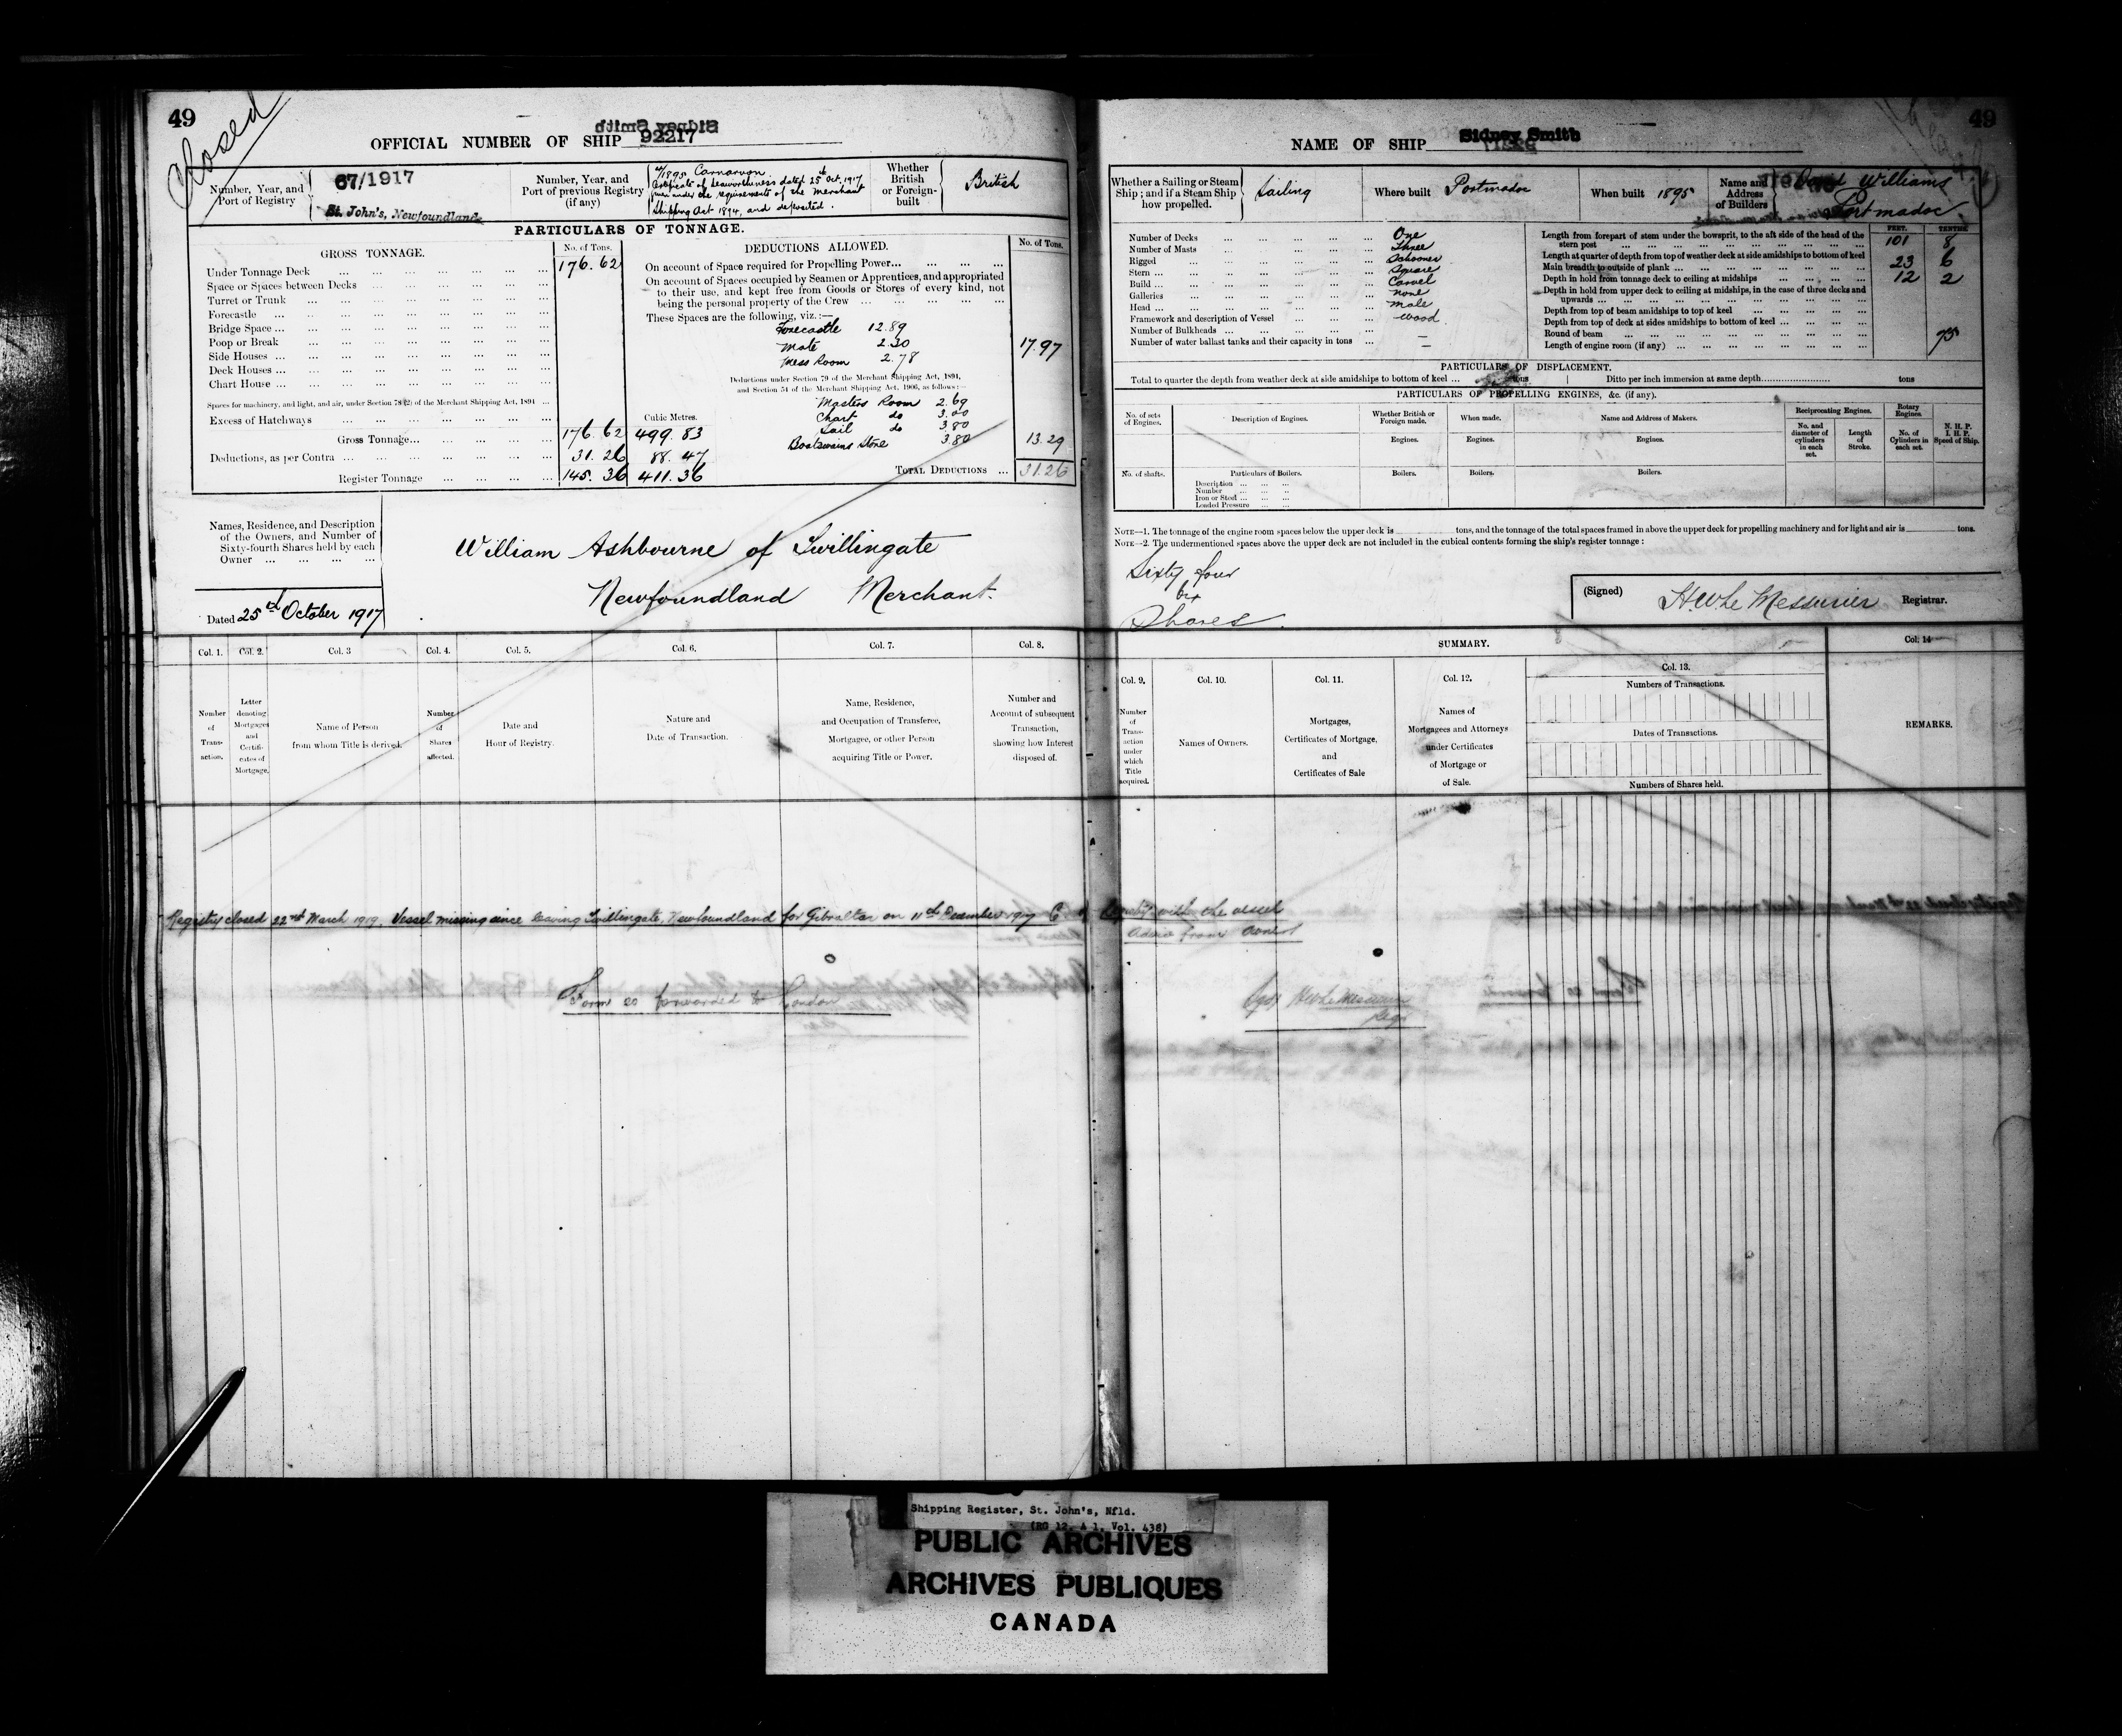 49
Closed
OFFICIAL NUMBER OF SHIP 92217
Number, Year, and
Port of Registry
67/1917
St. John's, Newfoundland
Number, Year, and
Port of previous Registry
(if any)
4/1895 Carnarvon
Certificate of Seaworthiness dated 15th Oct. 1917
given under the requirements of the Merchant
Shipping Act 1894, and deposited.
Whether
British
or Foreign-
built
British
PARTICULARS OF TONNAGE.
GROSS TONNAGE.
No. of Tons.
Under Tonnage Deck 176.62
Space or Spaces between Decks
Turret or Trunk
Forecastle
Bridge Space
Poop or Break
Side Houses
Deck Houses
Chart House
Spaces for machinery, and light, and air, under Section 78 (2) of the Merchant Shipping Act, 1894
Excess of Hatchways
Cubic Metres.
Gross Tonnage 176.62 499.83
Deductions, as per Contra 31.26 88.47
Register Tonnage 145.36 411.36
DEDUCTIONS ALLOWED.
No. of Tons.
On account of Space required for Propelling Power
On account of Spaces occupied by Seamen or Apprentices, and appropriated
to their use, and kept free from Goods or Stores of every kind, not
being the personal property of the Crew
These Spaces are the following, viz.:—
Forecastle 12.89
Mate 2.30
Mess Room 2.78
17.97
Deductions under Section 79 of the Merchant Shipping Act, 1894,
and Section 54 of the Merchant Shipping Act, 1906, as follows:—
Masters Room 2.69
Chart do 3.00
Sail do 3.80
Boatswains Store 3.80
13.29
TOTAL DEDUCTIONS 31.26
Names, Residence, and Description
of the Owners, and Number of
Sixty-fourth Shares held by each
Owner
William Ashbourne of Twillingate
Newfoundland Merchant.
Dated 25th October 1917
Col. 1. Col. 2. Col. 3 Col. 4. Col. 5. Col. 6. Col. 7. Col. 8.
Number
of
Trans-
action.
Letter
denoting
Mortgages
and
Certifi-
cates of
Mortgage.
Name of Person
from whom Title is derived.
Number
of
Shares
affected.
Date and
Hour of Registry.
Nature and
Date of Transaction.
Name, Residence,
and Occupation of Transferee,
Mortgagee, or other Person
acquiring Title or Power.
Number and
Account of subsequent
Transaction,
showing how Interest
disposed of.
Registry closed 22nd March 1919. Vessel missing since leaving Twillingate, Newfoundland for Gibraltar on 11th December 1917 C. of Registry with the vessel
Advice from Owners
Form 20 forwarded to London
49
NAME OF SHIP Sidney Smith
Whether a Sailing or Steam
Ship; and if a Steam Ship
how propelled.
Sailing
Where built Portmadoc
When built 1895
Name and
Address
of Builders
David Williams
Portmadoc
Number of Decks One
Number of Masts Three
Rigged Schooner
Stern Square
Build Carvel
Galleries none
Head male
Framework and description of Vessel wood
Number of Bulkheads —
Number of water ballast tanks and their capacity in tons —
FEET. TENTHS.
Length from forepart of stem under the bowsprit, to the aft side of the head of the
stern post 101 8
Length at quarter of depth from top of weather deck at side amidships to bottom of keel
Main breadth to outside of plank 23 6
Depth in hold from tonnage deck to ceiling at midships 12 2
Depth in hold from upper deck to ceiling at midships, in the case of three decks and
upwards
Depth from top of beam amidships to top of keel
Depth from top of deck at sides amidships to bottom of keel
Round of beam 75
Length of engine room (if any)
PARTICULARS OF DISPLACEMENT.
Total to quarter the depth from weather deck at side amidships to bottom of keel tons Ditto per inch immersion at same depth tons
PARTICULARS OF PROPELLING ENGINES, &c. (if any).
No. of sets
of Engines.
Description of Engines.
Whether British or
Foreign made.
When made.
Name and Address of Makers.
Reciprocating Engines.
Rotary
Engines.
N. H. P.
I. H. P.
Speed of Ship.
No. and
diameter of
cylinders
in each
set.
Length
of
Stroke.
No. of
Cylinders in
each set.
Engines. Engines. Engines.
No. of shafts. Particulars of Boilers. Boilers. Boilers. Boilers.
Description
Number
Iron or Steel
Loaded Pressure
NOTE—1. The tonnage of the engine room spaces below the upper deck is tons, and the tonnage of the total spaces framed in above the upper deck for propelling machinery and for light and air is tons.
NOTE—2. The undermentioned spaces above the upper deck are not included in the cubical contents forming the ship's register tonnage:
Sixty four
Shares
(Signed) H W Le Messurier Registrar.
SUMMARY.
Col. 9. Col. 10. Col. 11. Col. 12. Col. 13. Col. 14
Number
of
Trans-
action
under
which
Title
acquired.
Names of Owners.
Mortgages,
Certificates of Mortgage,
and
Certificates of Sale
Names of
Mortgagees and Attorneys
under Certificates
of Mortgage or
of Sale.
Numbers of Transactions.
Dates of Transactions.
Numbers of Shares held.
REMARKS.
(sgd) H W Le Messurier
Regr
Shipping Register, St. John's, Nfld.
(RG 12, A 1, Vol. 438)
PUBLIC ARCHIVES
ARCHIVES PUBLIQUES
CANADA